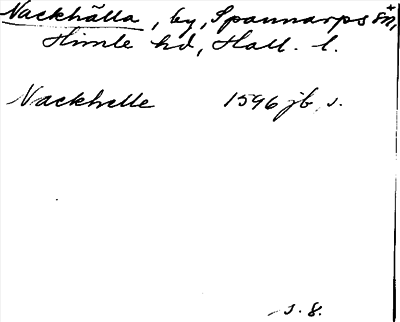 Nackhälla, by, Spannarps sn,
Himle hd, Hall. l.
Nackhelle 1596 jb, s.
s. 8.